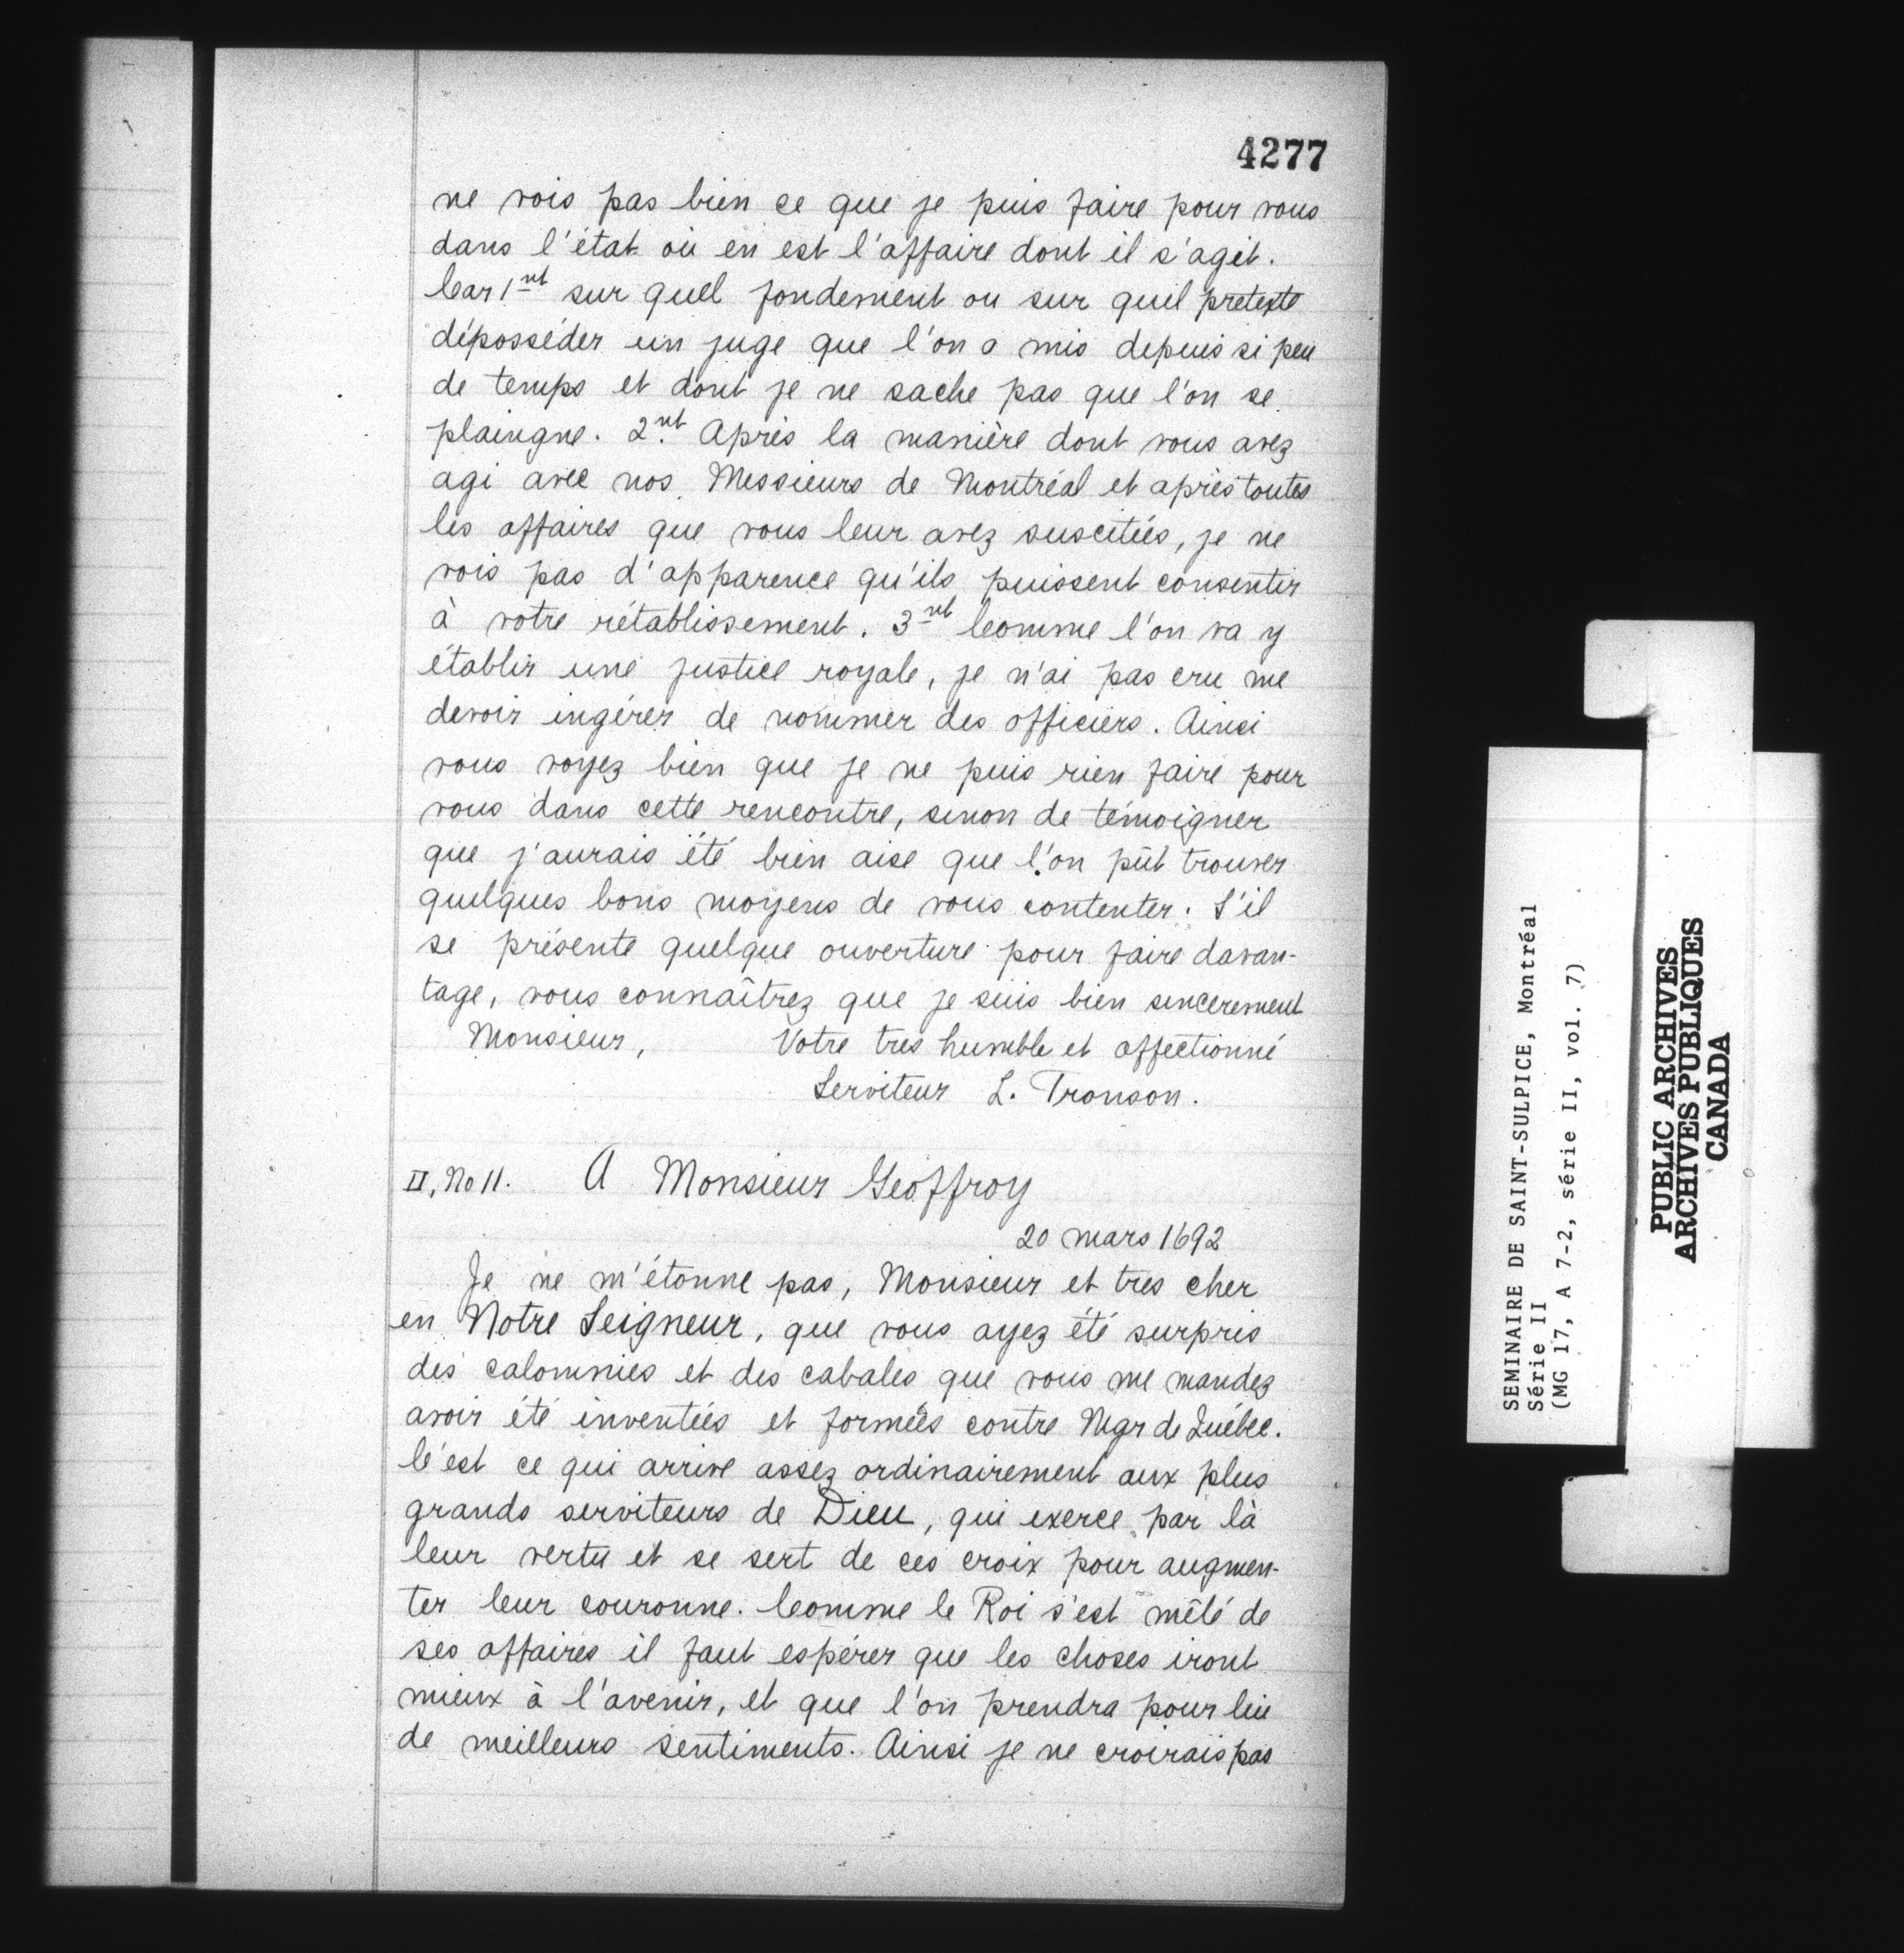 4277
ne vois pas bien ce que je puis faire pour vous
dans l'état où en est l'affaire dont il s'agit.
Car 1nt sur quel fondement ou sur quel pretexte
déposséder un juge que l'on a mis depuis si peu
de temps et dont je ne sache pas que l'on se
plaingne. 2nt Après la manière dont vous avez
agi avec nos Messieurs de Montréal et après toutes
les affaires que vous leur avez suscitées, je ne
vois pas d'apparence qu'ils puissent consentir
à votre rétablissement. 3nt Comme l'on va y
établir une justice royale, je n'ai pas cru me
devoir ingérer de nommer des officiers. Ainsi
vous voyez bien que je ne puis rien faire pour
vous dans cette rencontre, sinon de témoigner
que j'aurais été bien aise que l'on pût trouver
quelques bons moyens de vous contenter. S'il
se présente quelque ouverture pour faire davan-
tage, vous connaîtrez que je suis bien sincerement
Monsieur, Votre tres humble et affectionné
Serviteur L. Tronson.
II, No 11. A Monsieur Geoffroy
20 mars 1692
Je ne m'étonne pas, Monsieur et tres cher
en Notre Seigneur, que vous ayez été surpris
des calomnies et des cabales que vous me mandez
avoir été inventées et formées contre Mgr de Québec.
C'est ce qui arrive assez ordinairement aux plus
grands serviteurs de Dieu, qui exerce par là
leur vertu et se sert de ces croix pour augmen-
ter leur couronne. Comme le Roi s'est mêlé de
ses affaires il faut espérer que les choses iront
mieux à l'avenir, et que l'on prendra pour lui
de meilleurs sentiments. Ainsi je ne croirais pas
SEMINAIRE DE SAINT-SULPICE, Montréal
Série II
(MG 17, A 7-2, série II, vol. 7)
PUBLIC ARCHIVES
ARCHIVES PUBLIQUES
CANADA